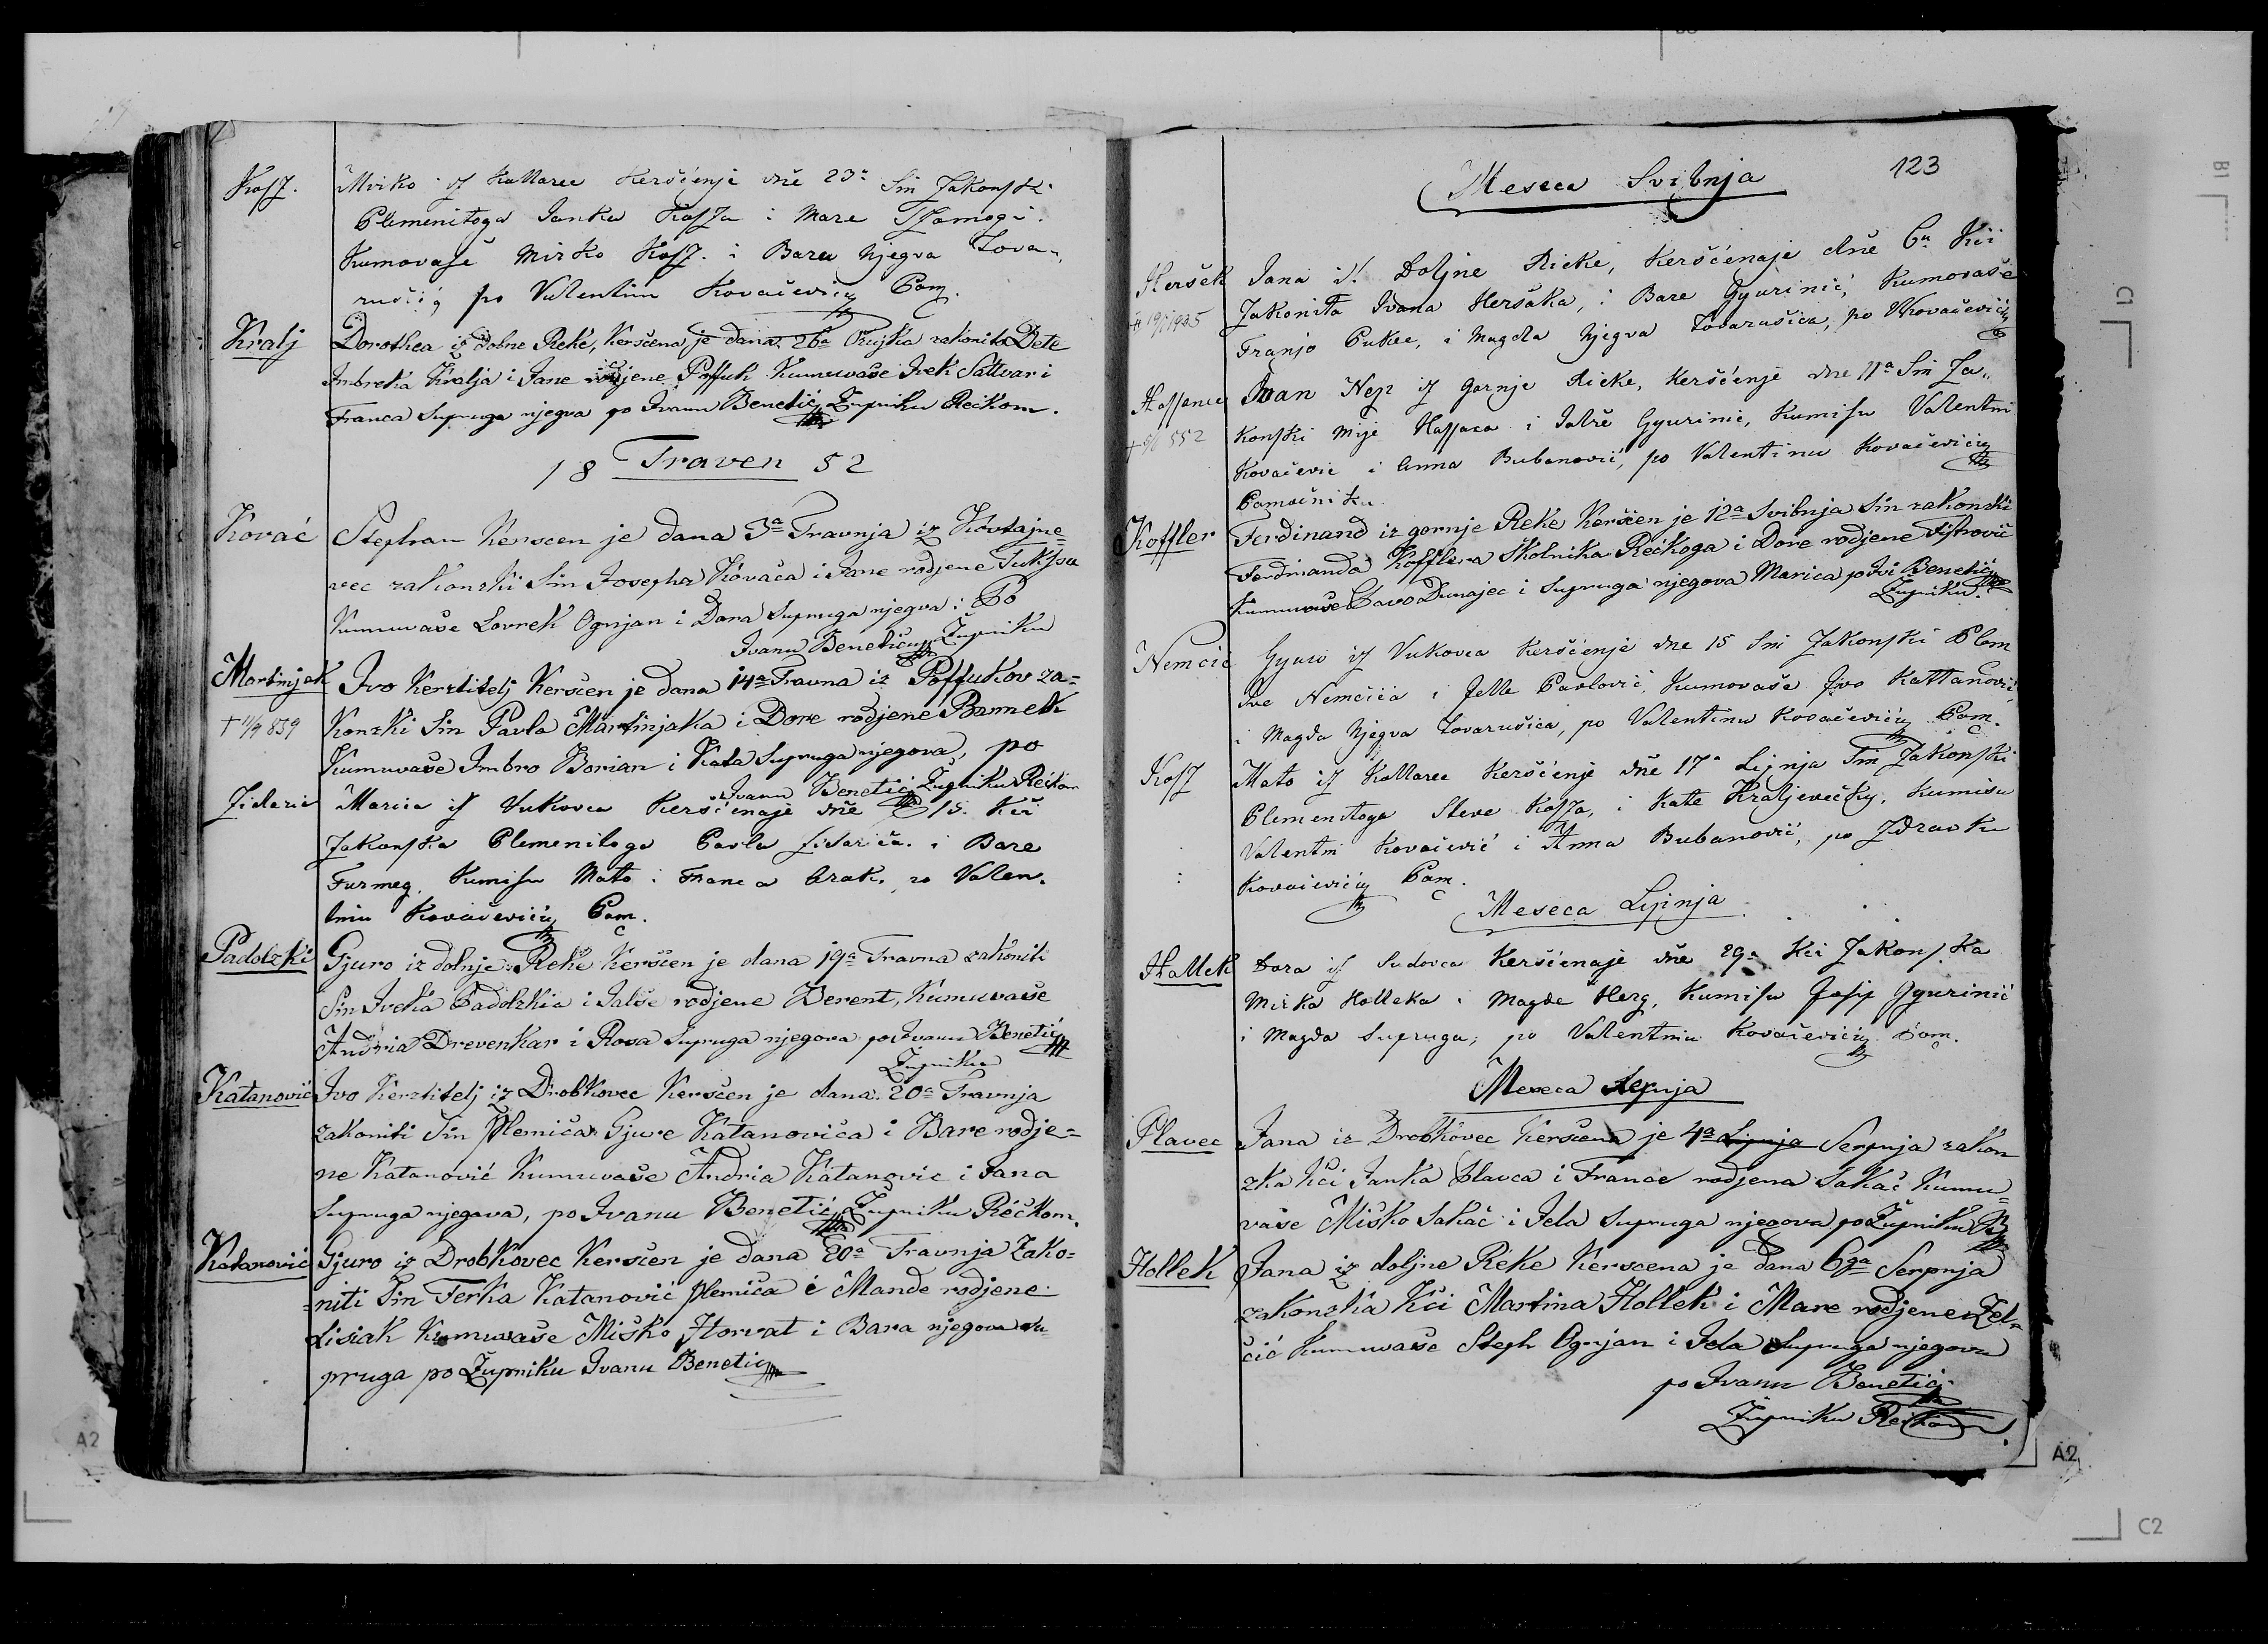 Kosz. Mirko iz Kallarec Keršćenje dne 23a Sin Zakonski
Plemenitoga Janka Kosza i Mare
Kumovaše Mirko Kosz. i Bara Njegva Tova„
rušića po Valentinu Kovačeviću Pom.
Kralj Dorothea iz dolne Reke, Kerscena je dana 26a Ožujka zakonito Dete
Imbreka Kralja i Jane rodjene Poffuk Kumuvaše Ivek Sattvar i
Franca Supruga njegva po Ivanu Benetić Župniku Rečkom.
18 Traven 52
Kovać Stephan Kerscen je dana 3a Travnja iz Kostajne=
vec zakonzki Sin Josepha Kovača i Jane rodjene
Kumuvaše Lovrek Ognjan i Dora Supruga njegva: Po
Ivanu Benetiću Župniku
Martinjak Ivo Kerztitelj Kerscen je dana 14a Travna iz Poffukov za=
† 11/4 859 Konzki Sin Pavla Martinjaka i Dore rodjene
Kumuvaše Imbro Borian i Kata Supruga njegova, po
Ivanu Benetić Župniku Rečkom
Zidarić Marica iz Vukovca Keršćenaje dne 15. Kći
Zakonska Plemenitoga Pavla Zidarića i Bare
Furmeg. Kumisu Mato i Franca Brak. po Valen„
tinu Kovačeviću Pom.
Padolzki Gjuro iz dolnje Reke Kerscen je dana 19a Travna zakoniti
Sin Iveka Padolzkia i Jalše rodjene Derent, Kumuvaše
Andria Drevenkar i Rosa Supruga njegova po Ivanu Benetić
Župniku
Katanović Ivo Kerztitelj iz Drobkovec Kerscen je dana 20a Travnja
zakoniti Sin Plemića Gjure Katanovića i Bare rodje=
ne Katanović Kumuvaše Andria Katanovic i Jana
Supruga njegova, po Ivanu Benetić Župniku Rečkom.
Katanović Gjuro iz Drobkovec Kerscen je dana 20a Travnja Zako=
=niti Sin Ferka Katanović plemića i Mande rodjene
Lisiak Kumuvaše Miško Horvat i Bara njegova su
pruga po Župniku Ivanu Benetiću
123
Meseca Svibnja
Heršek Jana iz Doljne Rieke, Keršćenaje dne 6a Kći
† 19/1 1925 Zakonita Ivana Heršaka, i Bare Gyurinić, Kumovaše
Franjo Pukec, i Magda Njegva Tovarušica, po VKovačeviću
Hassanec Ivan Nep iz Gornje Rieke, Keršćenje dne 11a Sin Za„
Konski Mije Hassaca i Jalže Gyurinić, Kumisu Valentin
Kovačević i Anna Bubanović, po Valentinu Kovačeviću
Pomoćniku.
Koffler Ferdinand iz gornje Reke Keršćen je 12a Svibnja Sin zakonzki
Ferdinanda Kofflera Školnika Rečkoga i Dore rodjene
Kumuvaše Pavo Dunajec i Supruga njegova Marica po Ivi Benetić
Župniku.
Nemčić Gyuro iz Vukovca Keršćenje dne 15 Sin Zakonski Plem
Ive Nemčića i Jelle Pavlović, Kumovaše Ivo Kattanović
i Magda Njegva Tovarušica, po Valentinu Kovačeviću Pom.
Kosz Mato iz Kallarec Keršćenje dne 17a Lipnja Sin Zakonski
Plemenitoga Steve Kosza, i Kate Kraljevečky, Kumisu
Valentin Kovačević i Anna Bubanović, po Zdravku
Kovačeviću Pom.
Meseca Lipnja
Hallek Dora iz Sudovca Keršćenaje dne 29a Kći Zakonska
Mirka Holleka i Magde Herg, Kumisu Josip Gyurinić
i Magda Supruga, po Valentinu Kovačeviću Pom.
Meseca Serpnja
Plavec Jana iz Drobkovec Kerscena je 4a Lipnja Serpnja zakon
zka Kći Janka Plavca i France rodjena Sakač Kumu=
vaše Miško Sakač i Jela Supruga njegova po Župniku
Hollek Jana iz doljne Reke Kerscena je dana 6ga Serpnja
zakonzka Kći Martina Hollek i Mare rodjene Zel=
čić Kumuvaše Steph Ognjan i Jela Supruga njegova
po Ivanu Benetić
Župniku Rečkom.
A2
A2
B1
C1
C2